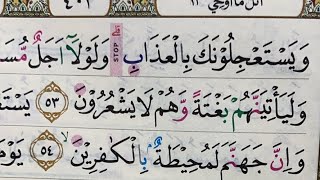 اتل ما اوحي ٢١
وَيَسْتَعْجِلُوْنَكَ بِالْعَذَابِ STOP وَلَوْلَآ اَجَلٌ مُّسَ
وَلَيَأْتِيَنَّهُمْ بَغْتَةً وَّهُمْ لَا يَشْعُرُوْنَ ٥٣ يَسْتَ
وَاِنَّ جَهَنَّمَ لَمُحِيْطَةٌ ۢ بِالْكٰفِرِيْنَ ٥٤ يَوْمَ